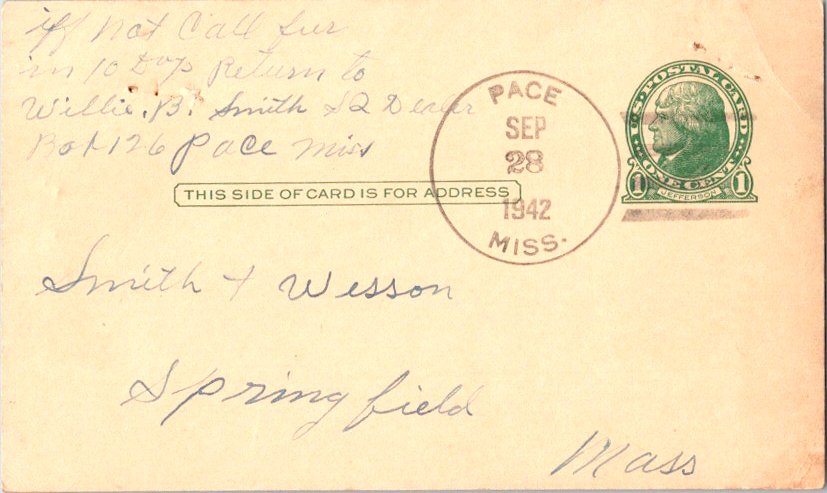 iff not Call fur
in 10 Days Return to
Willie. B. Smith Dealer
Box 126 Pace Miss
THIS SIDE OF CARD IS FOR ADDRESS
PACE
SEP
28
1942
MISS.
U.S. POSTAL CARD
ONE CENT
1 1
JEFFERSON
Smith + Wesson
Springfield
Mass